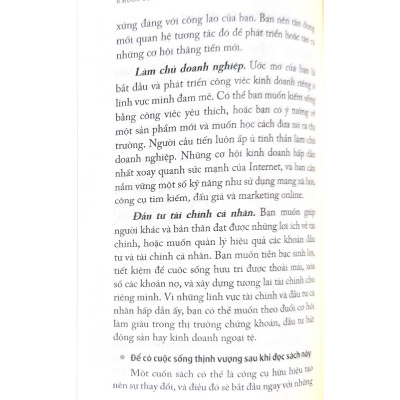 xứng đáng với công lao của bạn. Bạn nên tận dụng
mối quan hệ tương tác đó để phát triển hoặc tạo ra
những cơ hội thăng tiến mới.
Làm chủ doanh nghiệp. Ước mơ của bạn là
bắt đầu và phát triển công việc kinh doanh riêng ở
lĩnh vực mình đam mê. Có thể bạn muốn kiếm sống
bằng công việc yêu thích, hoặc bạn có ý tưởng về
một sản phẩm mới và muốn học cách đưa nó ra thị
trường. Người cầu tiến luôn ấp ủ tinh thần làm chủ
doanh nghiệp. Những cơ hội kinh doanh hấp dẫn
nhất xoay quanh sức mạnh của Internet, và bạn cần
nắm vững một số kỹ năng như sử dụng mạng xã hội,
công cụ tìm kiếm, đấu giá và marketing online.
Đầu tư tài chính cá nhân. Bạn muốn giúp
người khác và bản thân đạt được những lợi ích về tài
chính, hoặc muốn quản lý hiệu quả các khoản đầu
tư và tài chính cá nhân. Bạn muốn tiền bạc sinh lời,
tiết kiệm để cuộc sống hưu trí được thoải mái, xóa
sổ các khoản nợ, và xây dựng tương lai tài chính cho
riêng mình. Vì những lĩnh vực tài chính và đầu tư cá
nhân hấp dẫn ấy, bạn có thể muốn theo đuổi cơ hội
làm giàu trong thị trường chứng khoán, đầu tư bất
động sản hay kinh doanh ngoại tệ.
• Để có cuộc sống thịnh vượng sau khi đọc sách này
Một cuốn sách có thể là công cụ hữu hiệu tạo
nên sự thay đổi, và điều đó sẽ bắt đầu ngay với những